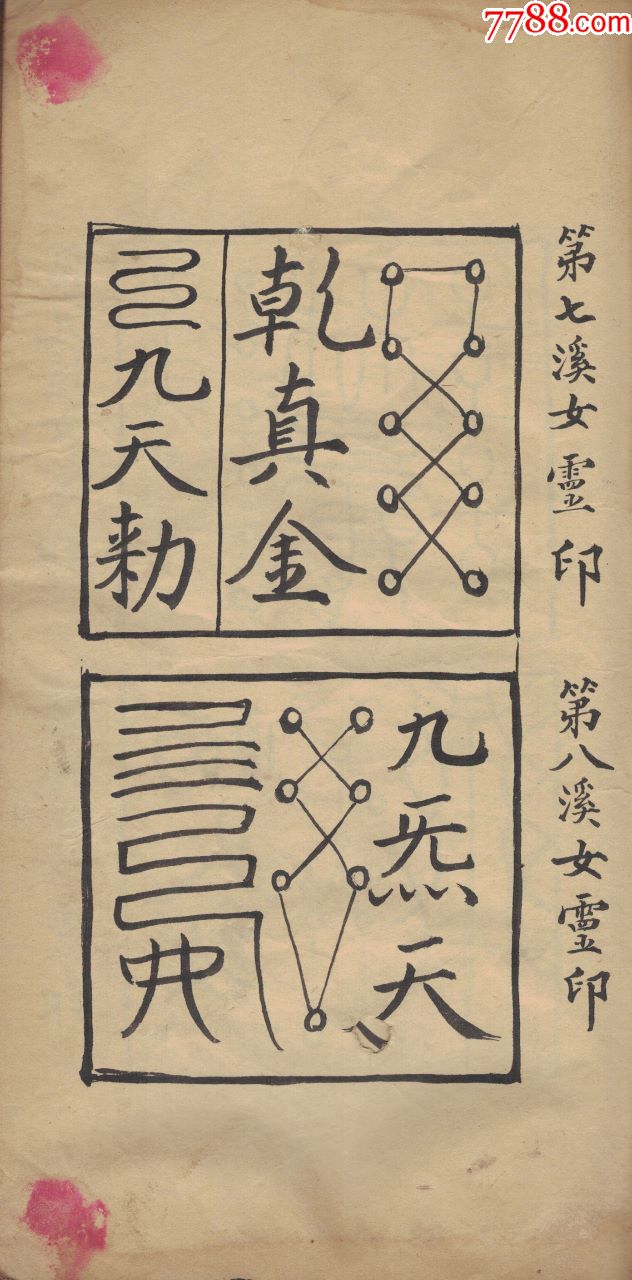 7788.com
第七溪女霊印
乾真金
九天勅
第八溪女霊印
九炁天